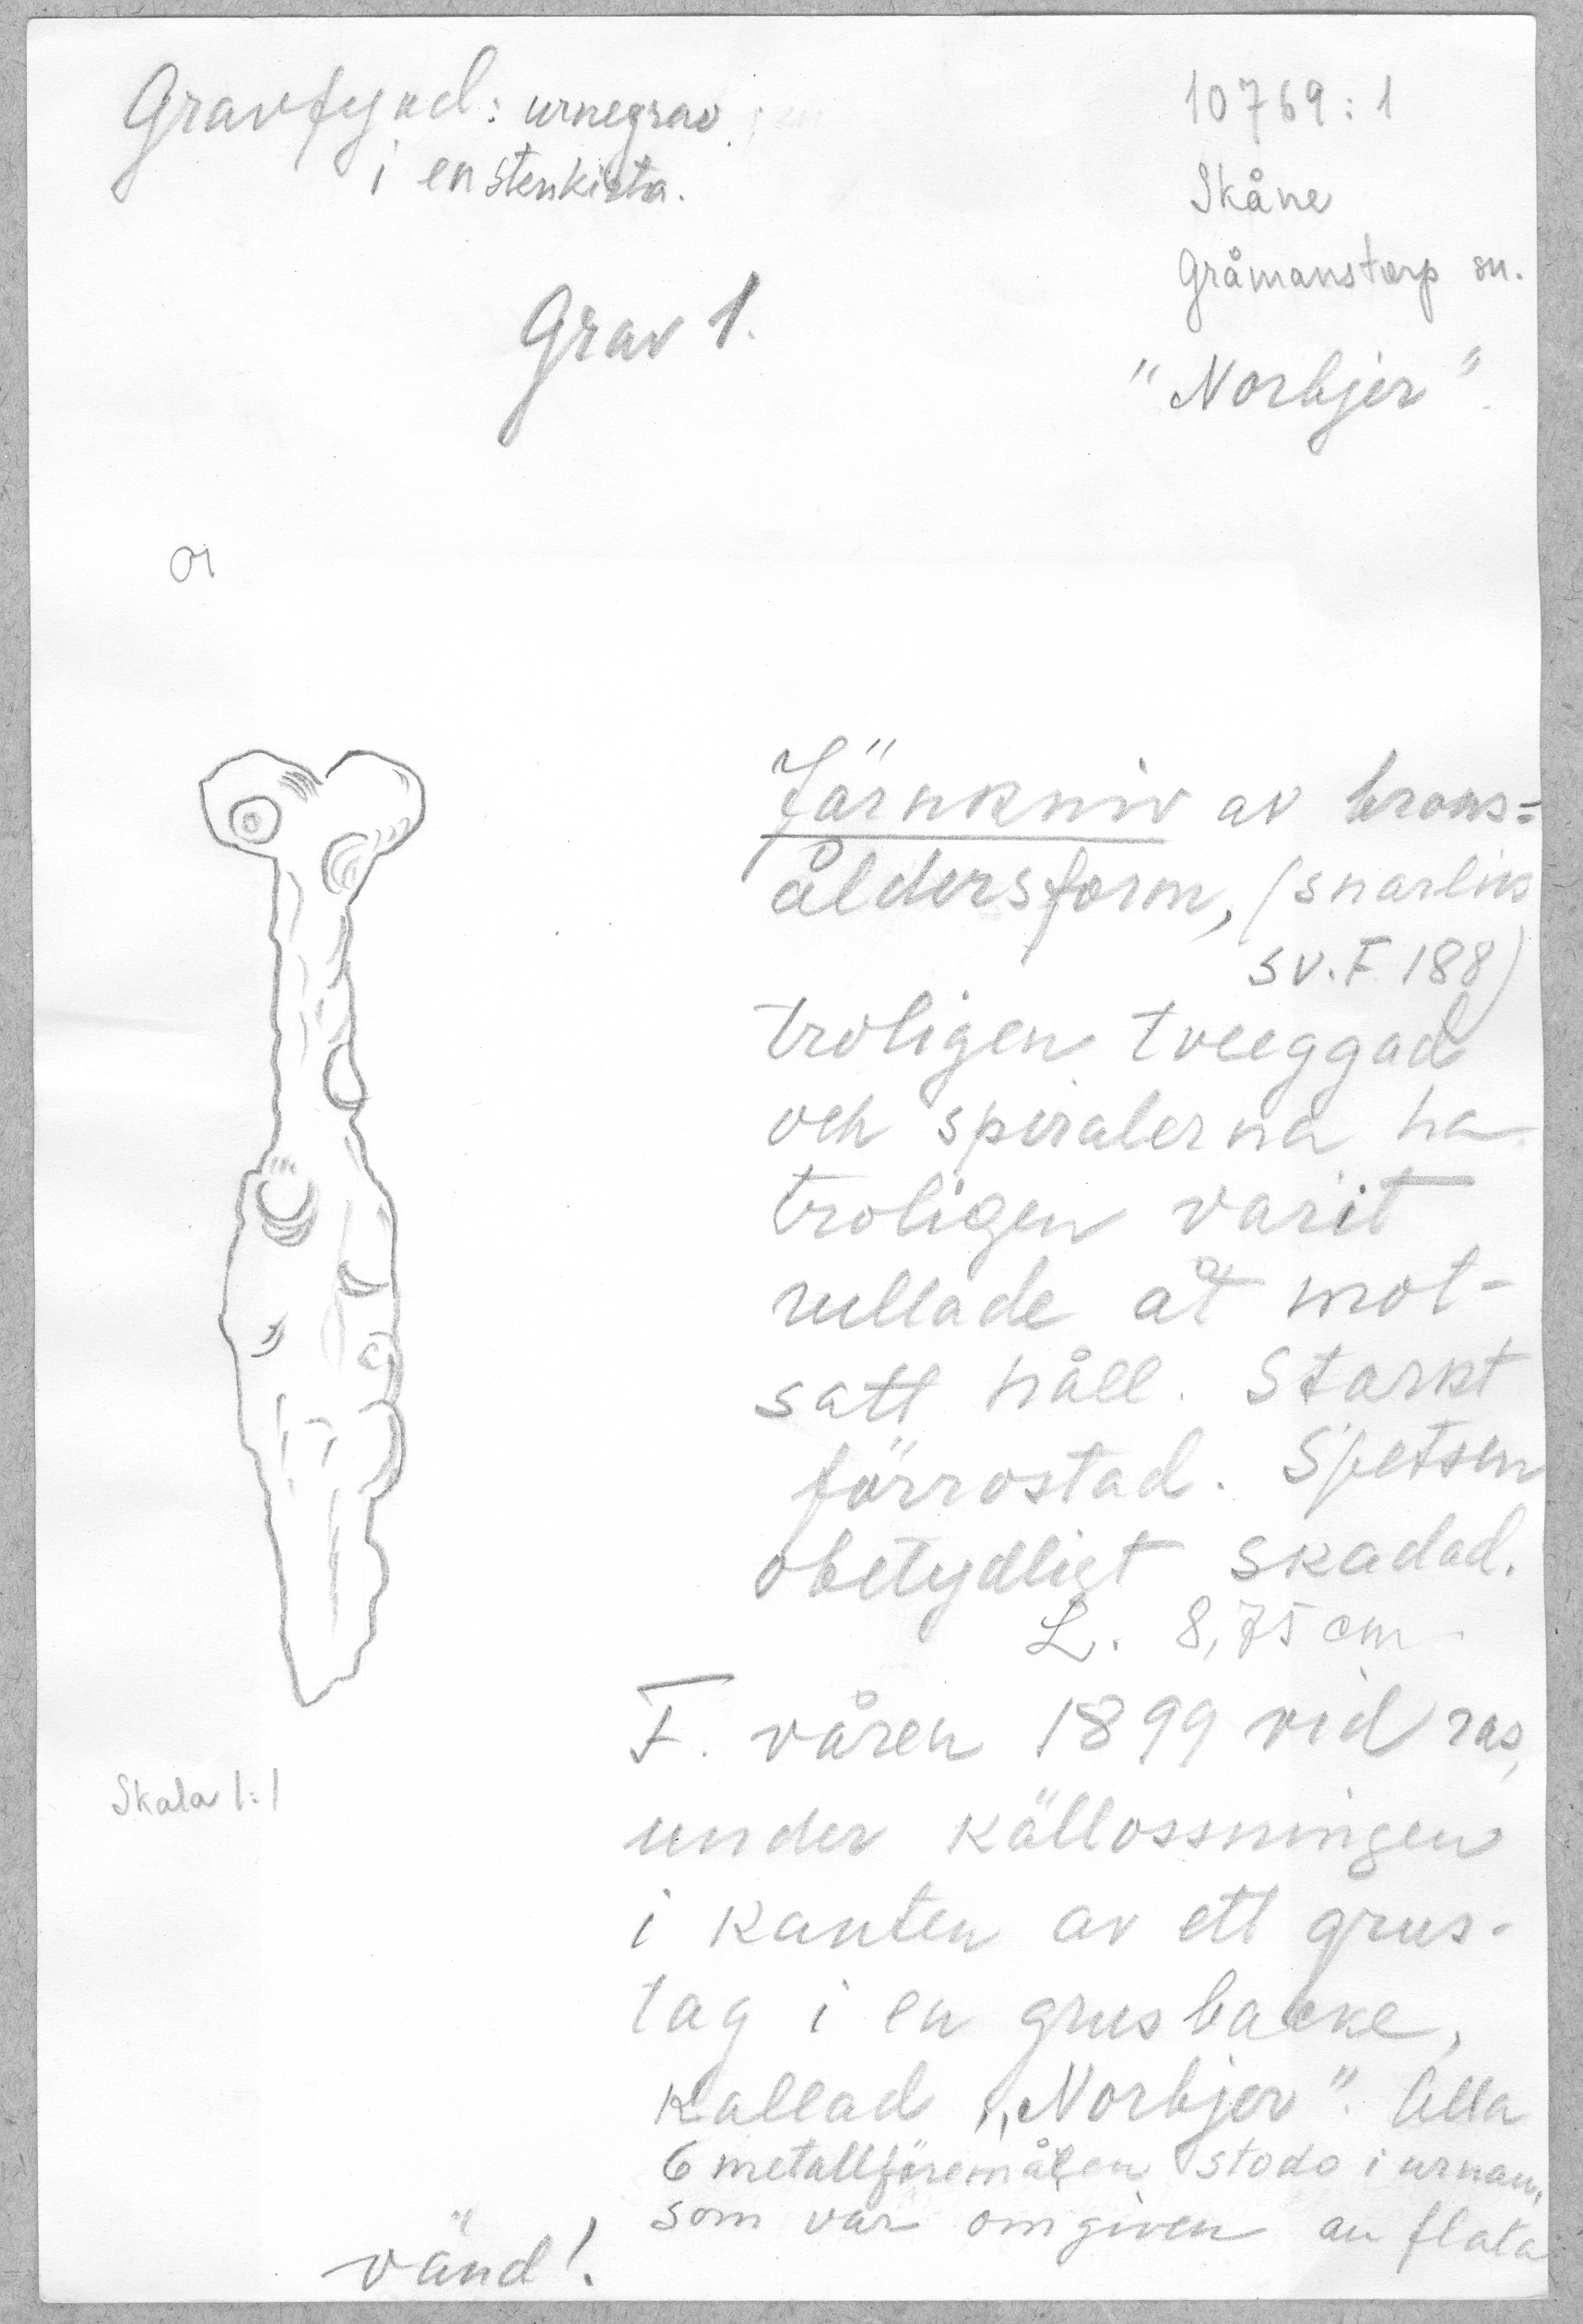 Gravfynd: urnegrav
i en stenkista.
10769:1
Skåne
Gråmanstorp sn.
"Norbjer".
Grav 1.
Järnkniv av brons=
åldersform, (snarlik
sv. F. 188)
troligen tveeggad
och spiralerna ha
troligen varit
rullade åt mot-
satt håll. Starkt
förrostad. Spetsen
obetydligt skadad.
L. 8,75 cm
F. våren 1899 vid ras,
under källossningen
i kanten av ett grus-
tag i en grusbacke,
kallad "Norbjer". Alla
6 metallföremålen stodo i urnan,
som var omgiven av flata
Skala 1:1
vänd!